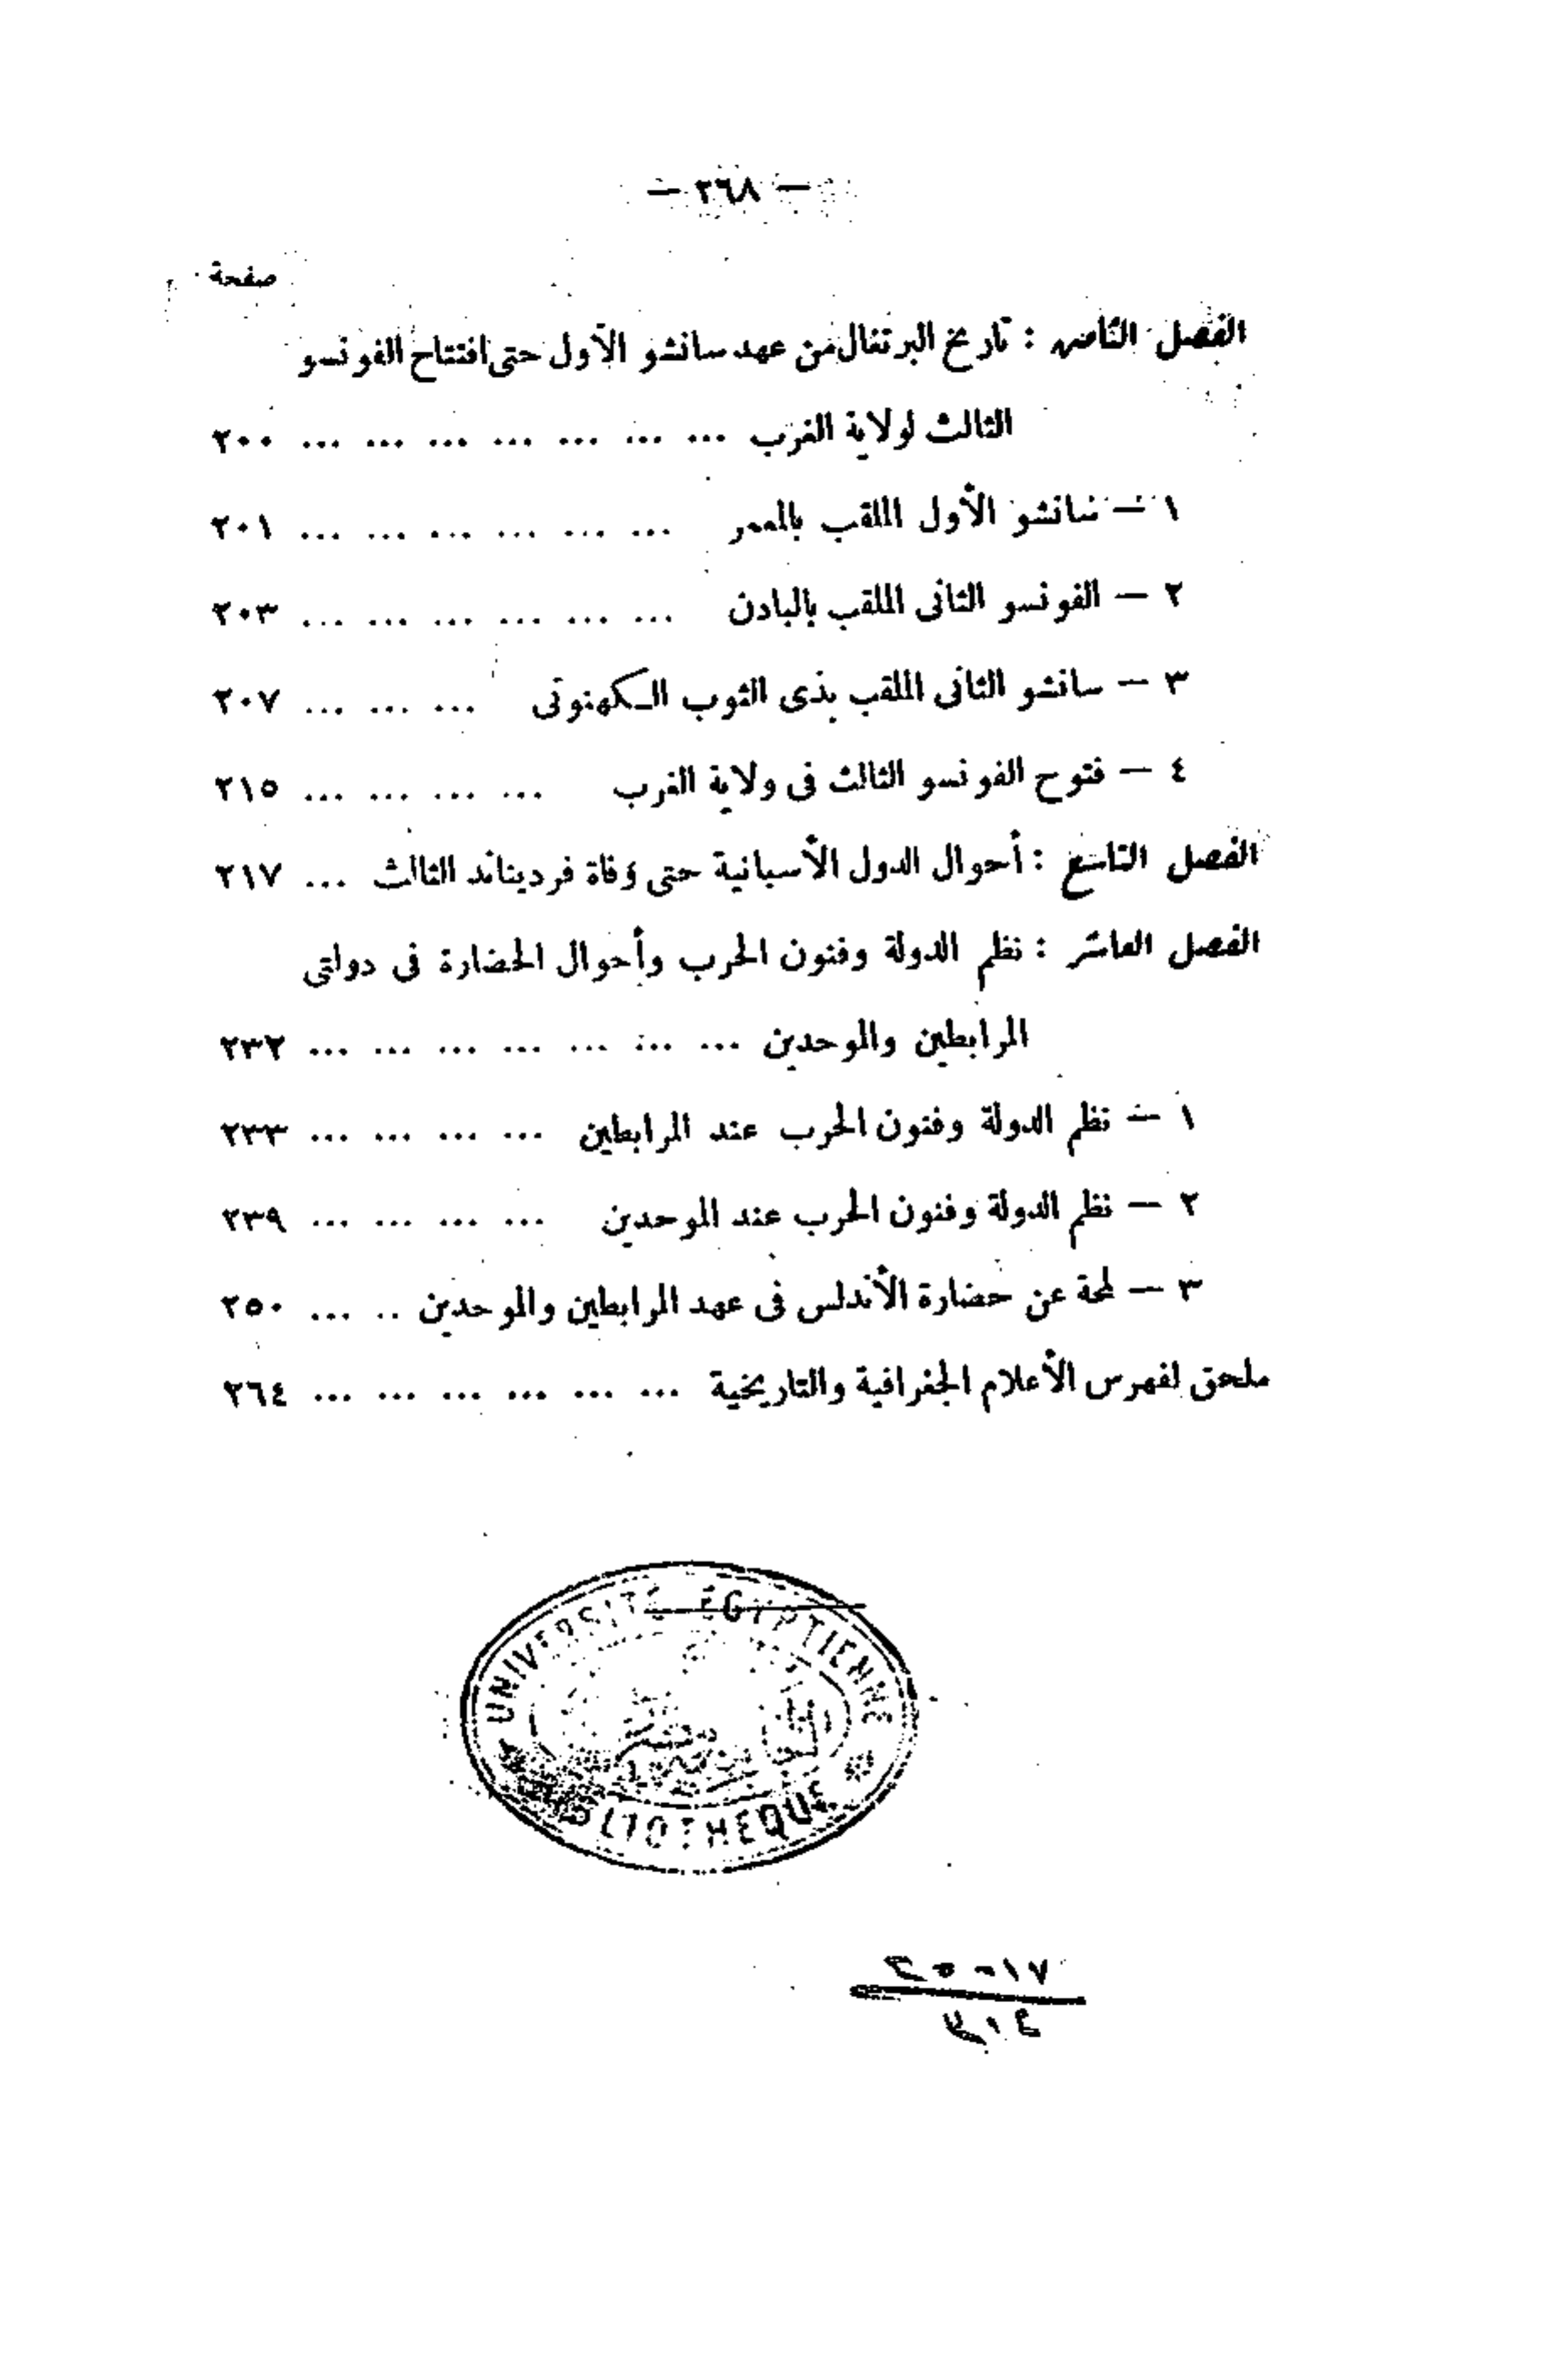 — ٢٦٨ —
صفحة
الفصل الثامن : تاريخ البرتغال من عهد سانشو الأول حتى افتتاح الفونسو
الثالث لولاية الغرب ... ... ... ... ... ... ... ٢٠٠
١ — سانشو الأول الملقب بالمعمر ... ... ... ... ... ... ٢٠١
٢ — الفونسو الثانى الملقب بالبادن ... ... ... ... ... ... ٢٠٣
٣ — سانشو الثانى الملقب بذى الثوب الكهنوتى ... ... ... ٢٠٧
٤ — فتوح الفونسو الثالث فى ولاية الغرب ... ... ... ... ٢١٥
الفصل التاسع : أحوال الدول الأسبانية حتى وفاة فرديناند الثالث ... ٢١٧
الفصل العاشر : نظم الدولة وفنون الحرب وأحوال الحضارة فى دولتى
المرابطين والموحدين ... ... ... ... ... ... ... ٢٣٢
١ — نظم الدولة وفنون الحرب عند المرابطين ... ... ... ... ٢٣٣
٢ — نظم الدولة وفنون الحرب عند الموحدين ... ... ... ... ٢٣٩
٣ — لمحة عن حضارة الأندلس فى عهد المرابطين والموحدين .. ... ٢٥٠
ملحق لفهرس الأعلام الجغرافية والتاريخية ... ... ... ... ... ... ٢٦٤
UNIVERSITÉ EGYPTIENNE
BIBLIOTHEQUE